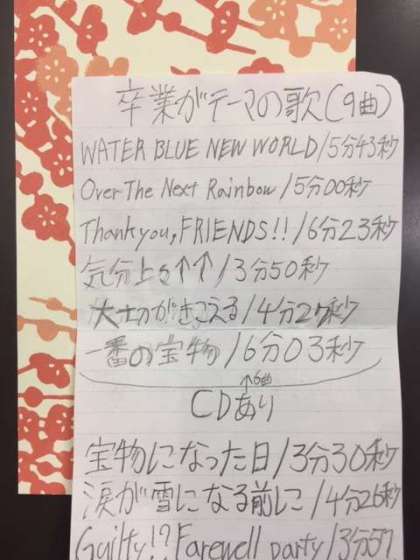 卒業がテーマの歌(9曲)
WATER BLUE NEW WORLD/5分43秒
Over The Next Rainbow/5分00秒
Thank you, FRIENDS!!/6分23秒
気分上々↑↑/3分50秒
大切がきこえる/4分27秒
一番の宝物/6分03秒
↑6曲
CDあり
宝物になった日/3分30秒
涙が雪になる前に/4分26秒
Guilty!?Farewell party/3分57